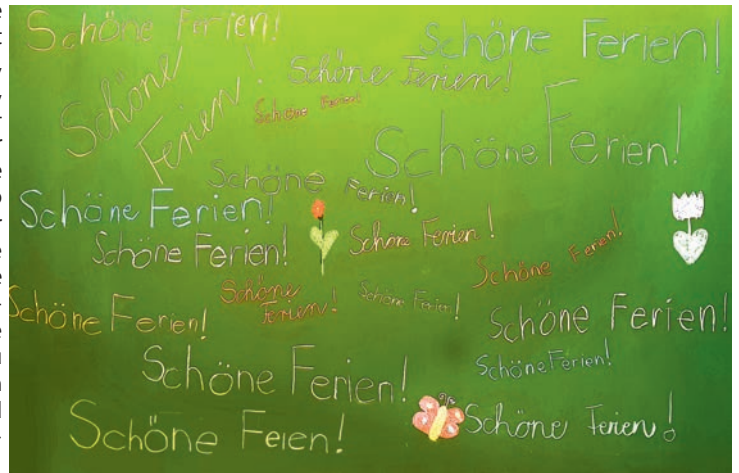 Schöne Ferien!
Schöne Ferien!
Schöne
Ferien!
Schöne Ferien!
Schöne Ferien!
Schöne Ferien!
Schöne Ferien!
Schöne Ferien!
Schöne Ferien!
Schöne Ferien!
Schöne Ferien!
Schöne
Ferien!
Schöne Ferien!
Schöne Ferien!
Schöne Ferien!
Schöne Ferien!
Schöne Ferien!
Schöne Feien!
Schöne Ferien!